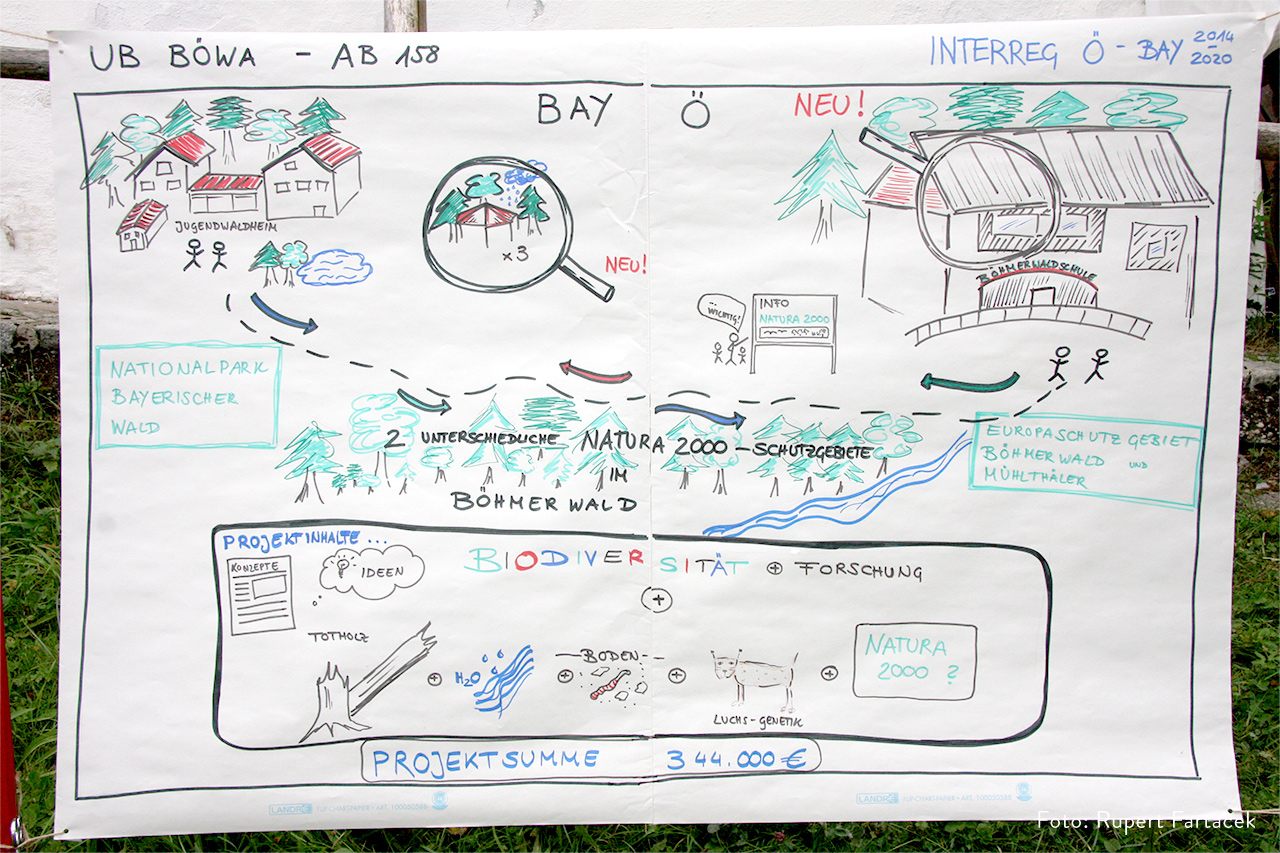 UB BÖWA - AB 158
INTERREG Ö - BAY 2014 - 2020
BAY
Ö
NEU!
JUGENDWALDHEIM
x3
NEU!
BÖHMERWALDSCHULE
WICHTIG!
INFO
NATURA 2000
NATIONALPARK
BAYERISCHER
WALD
2 UNTERSCHIEDLICHE NATURA 2000 - SCHUTZGEBIETE
IM
BÖHMER WALD
EUROPASCHUTZGEBIET
BÖHMERWALD UND
MÜHLTHÄLER
PROJEKTINHALTE ...
KONZEPTE
IDEEN
BIODIVERSITÄT + FORSCHUNG
+
TOTHOLZ
+ H2O + BODEN + LUCHS-GENETIK +
NATURA
2000 ?
PROJEKTSUMME 344.000 €
Foto: Rupert Fartacek